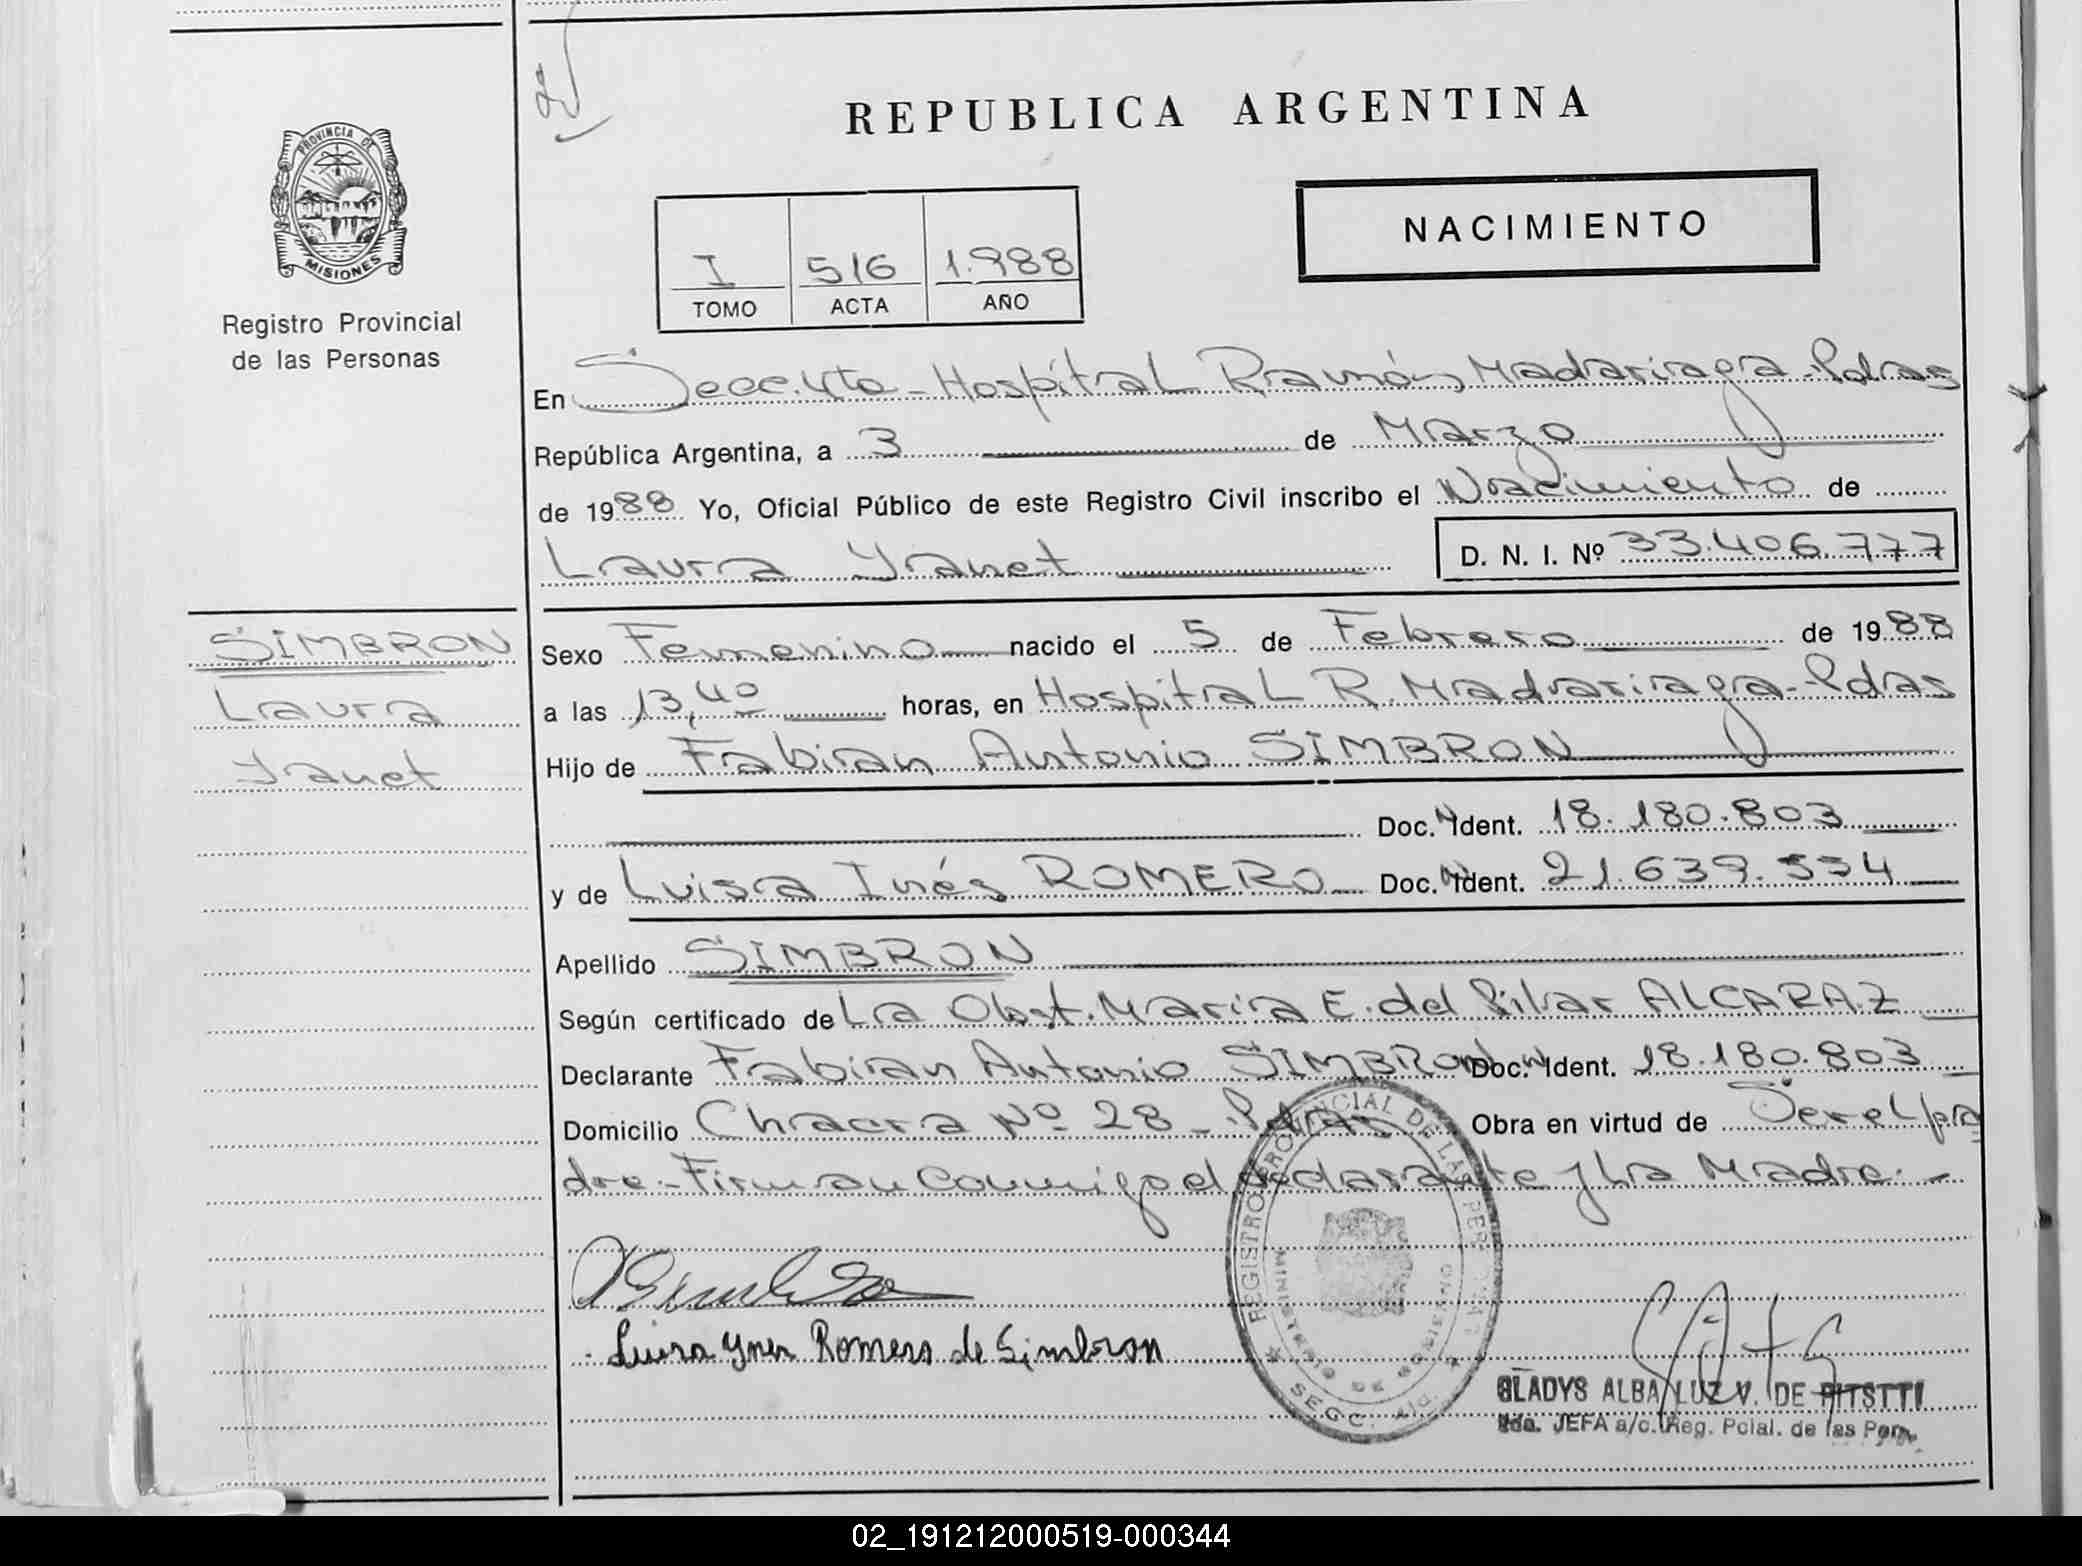 REPUBLICA ARGENTINA
PROVINCIA DE
MISIONES
Registro Provincial
de las Personas
NACIMIENTO
I 516 1.988
TOMO ACTA AÑO
En Secc. 4ta - Hospital Ramón Madariaga - Pdas
República Argentina, a 3 de Marzo
de 1988 Yo, Oficial Público de este Registro Civil inscribo el Nacimiento de
Laura Yanet D. N. I. Nº 33.406.777
SIMBRON
Laura
Yanet
Sexo Femenino nacido el 5 de Febrero de 1988
a las 13,40 horas, en Hospital R. Madariaga - Pdas
Hijo de Fabian Antonio SIMBRON
Doc. N Ident. 18.180.803
y de Luisa Inés ROMERO Doc. N Ident. 21.639.534
Apellido SIMBRON
Según certificado de La Obst. María E. del Pilar ALCARAZ
Declarante Fabian Antonio SIMBRON Doc. N Ident. 18.180.803
Domicilio Chacra Nº 28 - Pdas Obra en virtud de Ser el pa
dre - Firman Conmigo el declarante y La Madre. -
Luisa Ynes Romero de Simbron
REGISTRO PROVINCIAL DE LAS PERSONAS
MINISTERIO DE GOBIERNO
SEGC.
GLADYS ALBA LUZ V. DE
JEFA a/c. Reg. Pcial. de las Pers.
02_191212000519-000344